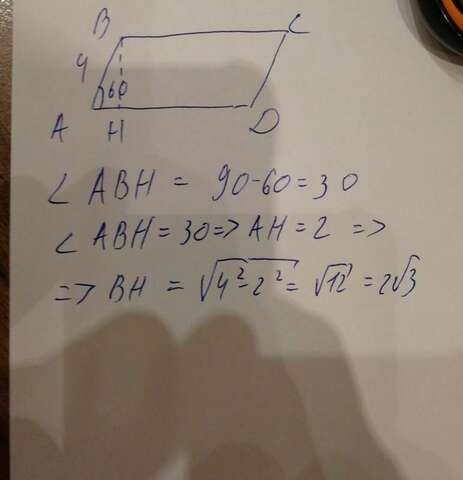 B C
4
60
A H D
∠ ABH = 90-60=30
∠ ABH=30=> AH=2 =>
=> BH = √4²-2² = √12 = 2√3